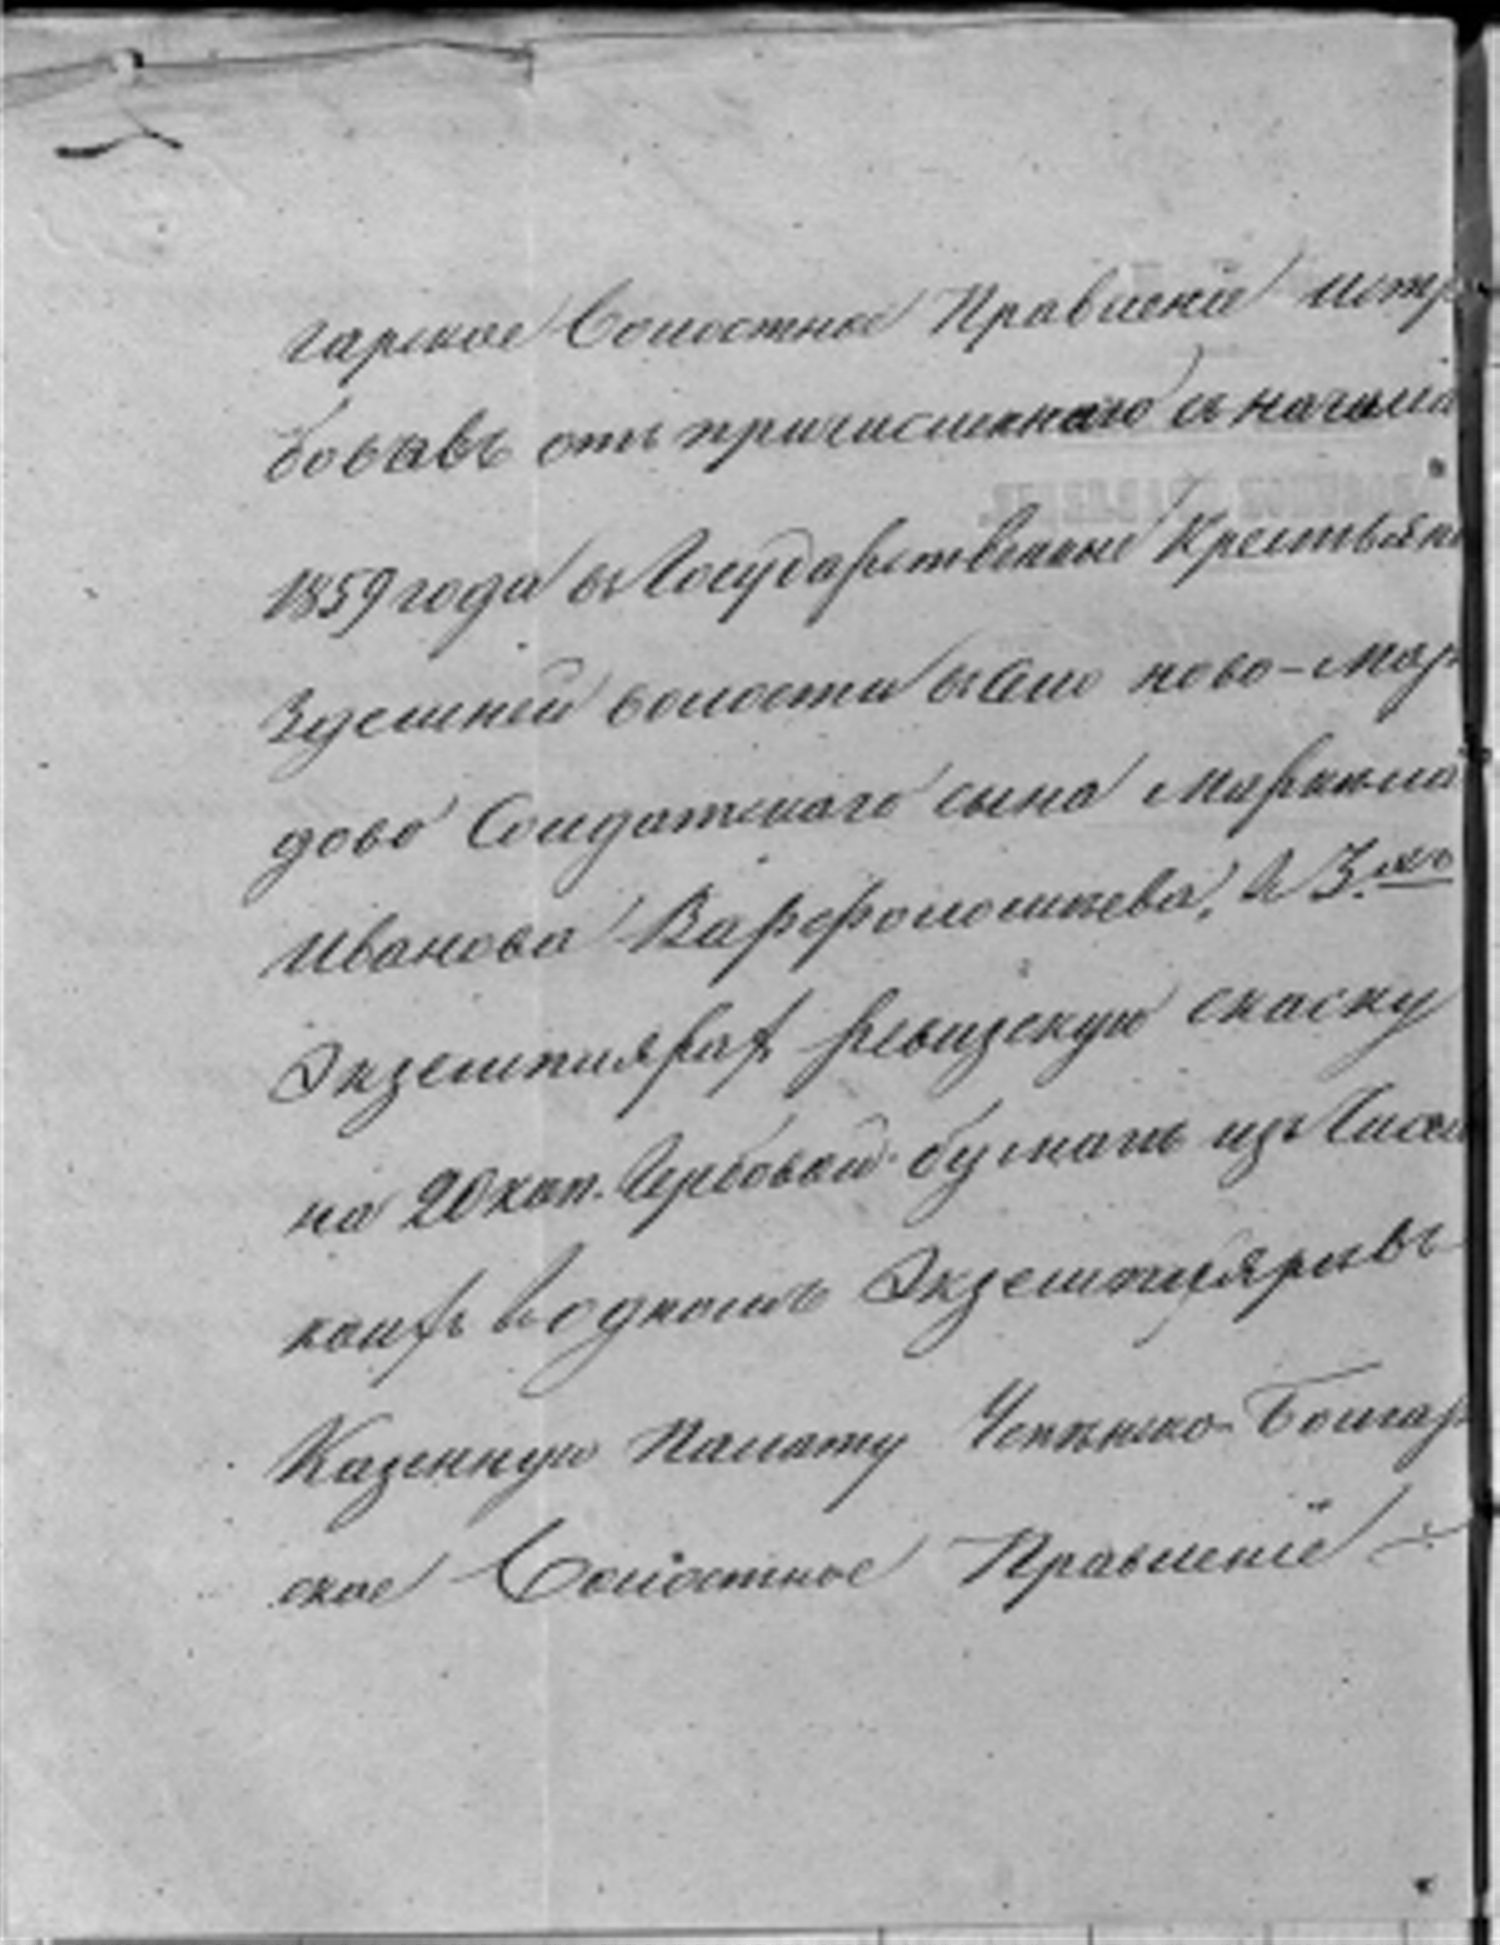 гарское Волостное Правленіе истр
бовавъ отъ причисленнаго съ начала
1859 года въ Государственные Крестьяне
Здешней волости въ село ново-Мар
дово Солдатскаго сына Маркела
Иванова Варфоломѣева, въ 3.хъ
Экземплярах ревизскую скаску
на 20 коп. Гербовой бумагѣ изъ
коихъ въ одномъ Экземплярѣ въ
Казенную Палату Болгар
ское Волостное Правленіе